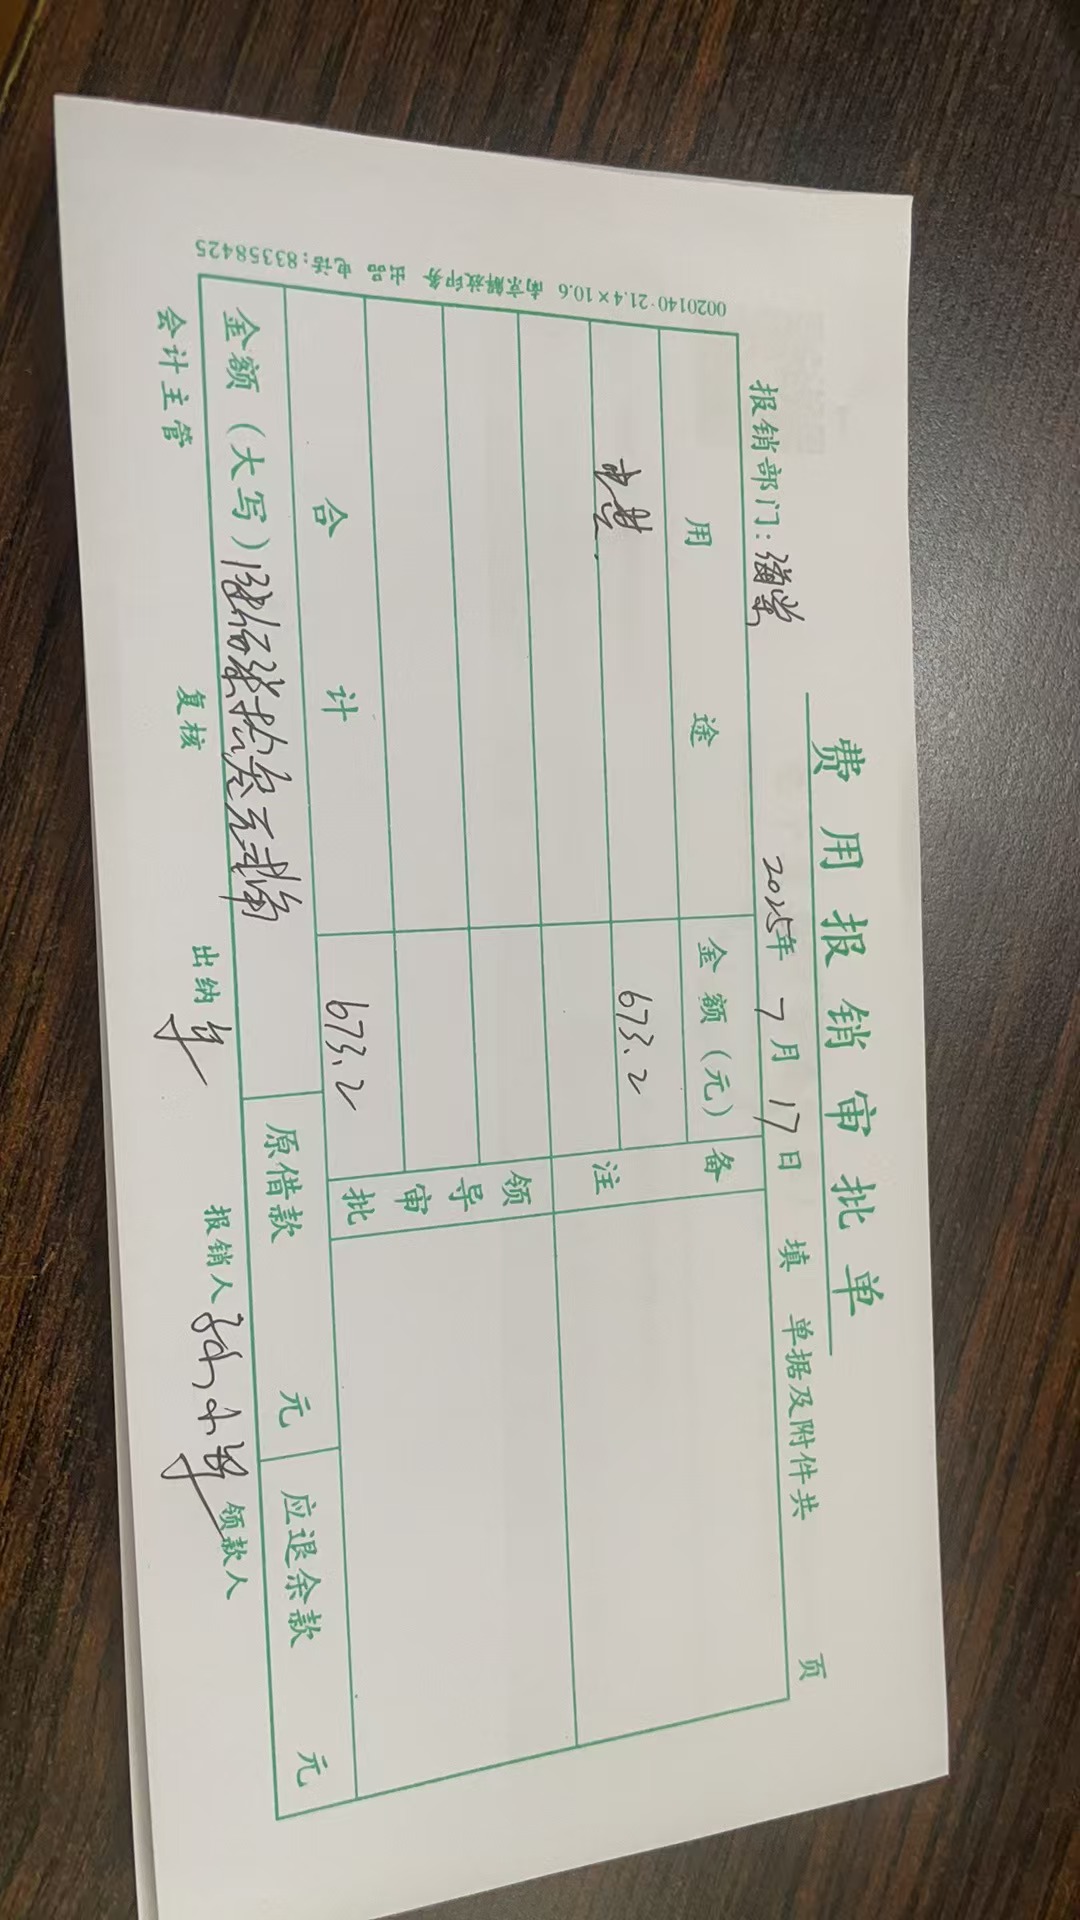 费用报销审批单
报销部门: 2025年 7月 17日 填 单据及附件共 页
用途 金额(元) 备注
673.2
领导审批
合计 673.2
金额(大写)陆佰柒拾叁元贰角 原借款 元 应退余款 元
会计主管 复核 出纳 报销人 领款人
0020140·21.4×10.6 南京解放印务 出品 电话:83358425